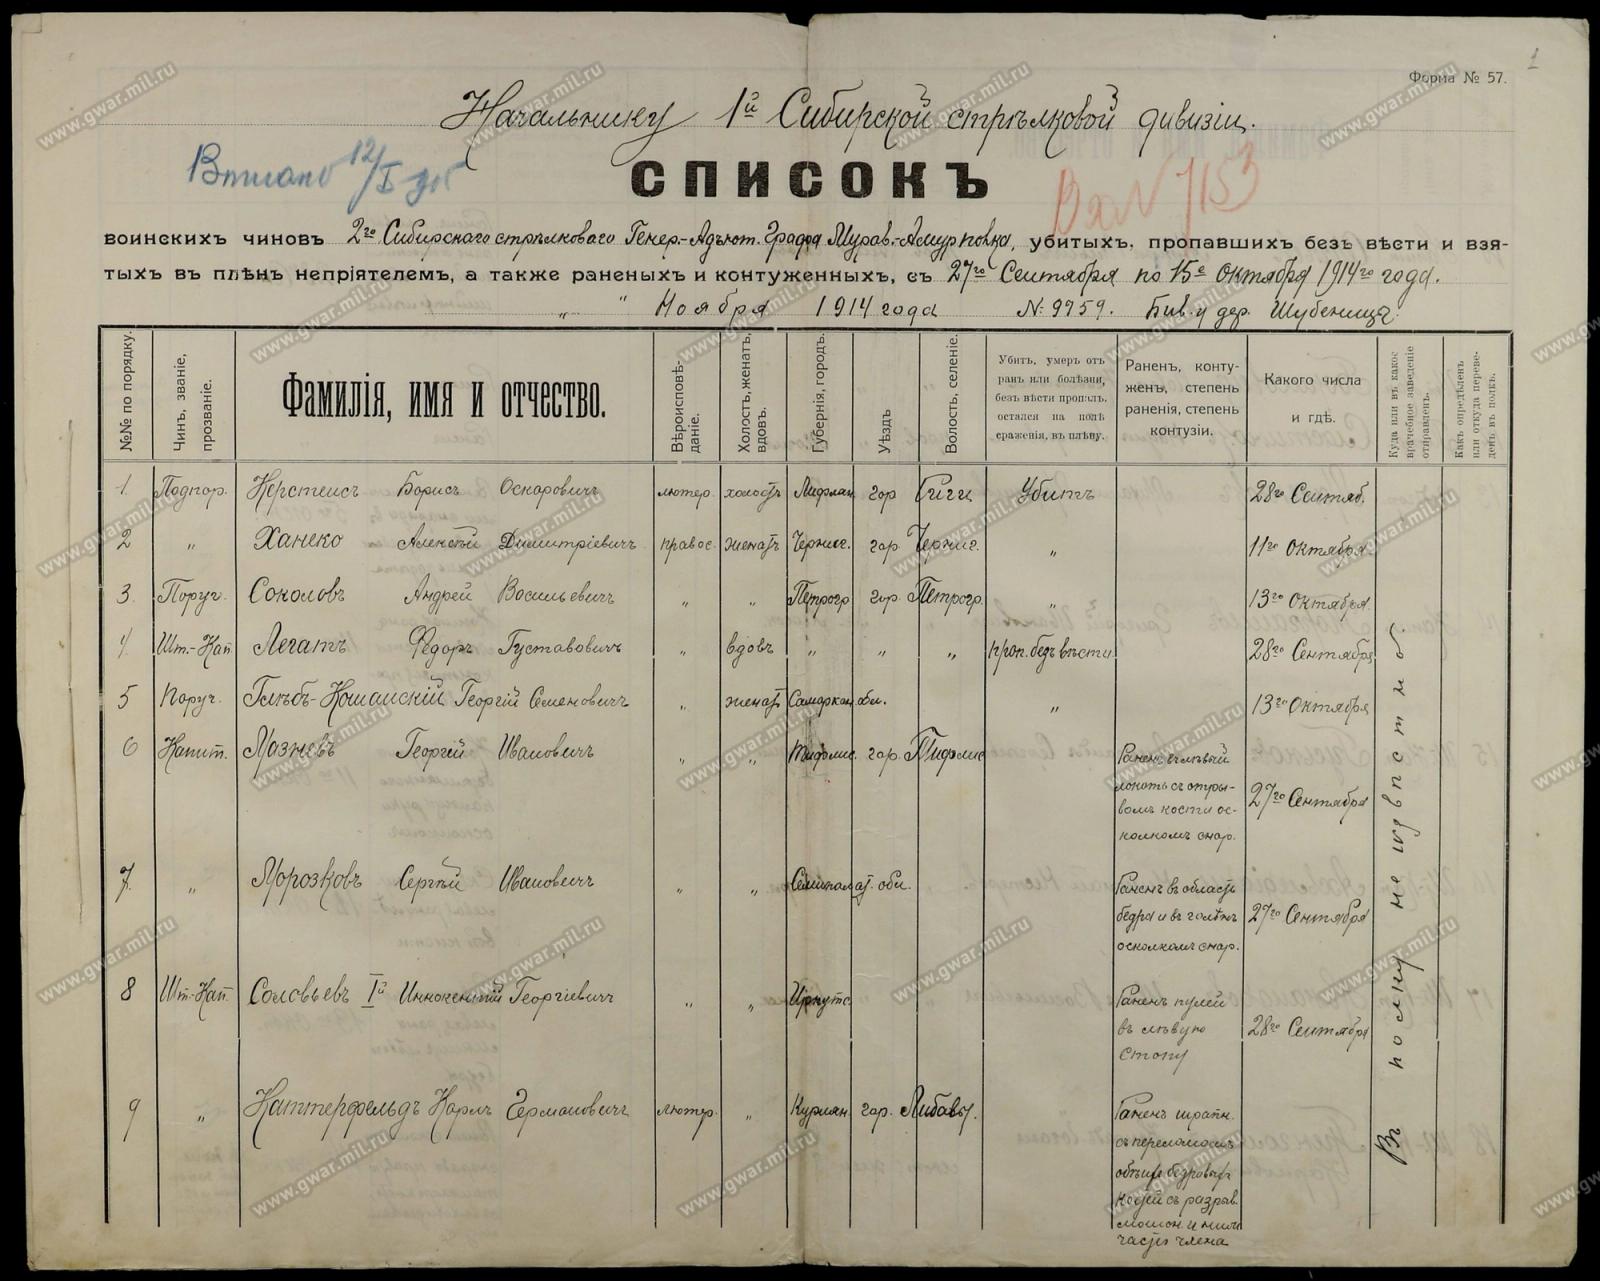 1
Форма № 57.
Начальнику 1й Сибирской стрѣлковой дивизіи.
СПИСОКЪ
Вписано 12/I 915
Вх № 1153
воинскихъ чиновъ 2го Сибирскаго стрѣлковаго Генер.-Адъют. Графа Мурав.-Амур полка, убитыхъ, пропавшихъ безъ вѣсти и взя-
тыхъ въ плѣнъ непріятелемъ, а также раненыхъ и контуженныхъ, съ 27го Сентября по 15е Октября 1914го года.
„ Ноября 1914 года № 9759. Бив. у дер. Шубеница
№№ по порядку.
Чинъ, званіе, прозваніе.
Фамилія, имя и отчество.
Вѣроисповѣ-
даніе.
Холостъ, женатъ,
вдовъ.
Губернія, городъ.
Уѣздъ
Волость, селеніе.
Убитъ, умеръ отъ
ранъ или болѣзни,
безъ вѣсти пропалъ,
остался на полѣ
сраженія, въ плѣну.
Раненъ, конту-
женъ, степень
раненія, степень
контузіи.
Какого числа
и гдѣ.
Куда или въ какое
врачебное заведеніе
отправленъ.
Какъ опредѣленъ
или откуда переве-
денъ въ полкъ.
1 Подпор. Керстенсъ Борисъ Оскаровичъ лютер. холостъ Лифлян гор Риги Убитъ 28го Сентяб.
2 „ Ханеко Алексѣй Димитріевичъ правос. женатъ Черниг. гор. Черниг. „ 11го Октября
3. Поруч. Соколовъ Андрей Васильевичъ „ „ Петрогр гор. Петрогр. „ 13го Октября.
4. Шт.-Кап Легатъ Федоръ Густавовичъ „ вдовъ „ „ „ проп. безъ вѣсти 28го Сентября
5 Поруч. Глѣбъ-Кошанскій Георгій Семеновичъ „ женатъ Самаркан. обл. „ 13го Октября
6 Капит. Мазневъ Георгій Ивановичъ „ „ Тифлис. гор. Тифлис Раненъ въ лѣвый
локоть съ отры-
вомъ кости ос-
колкомъ снар. 27го Сентября
7. „ Морозковъ Сергѣй Ивановичъ „ „ Семипалат. обл. Раненъ въ область
бедра и въ голѣнь
осколкомъ снар. 27го Сентября
8 Шт.-Кап. Соловьевъ Iй Иннокентій Георгіевичъ „ „ Иркутс. Раненъ пулей
въ лѣвую
стопу 28го Сентября
9 „ Каттерфельдъ Карлъ Германовичъ лютер. „ Курлян. гор. Либавы. Раненъ шрапн.
съ переломомъ
костей съ разрыв.
части члена
Въ полку не извѣстно.
www.gwar.mil.ru